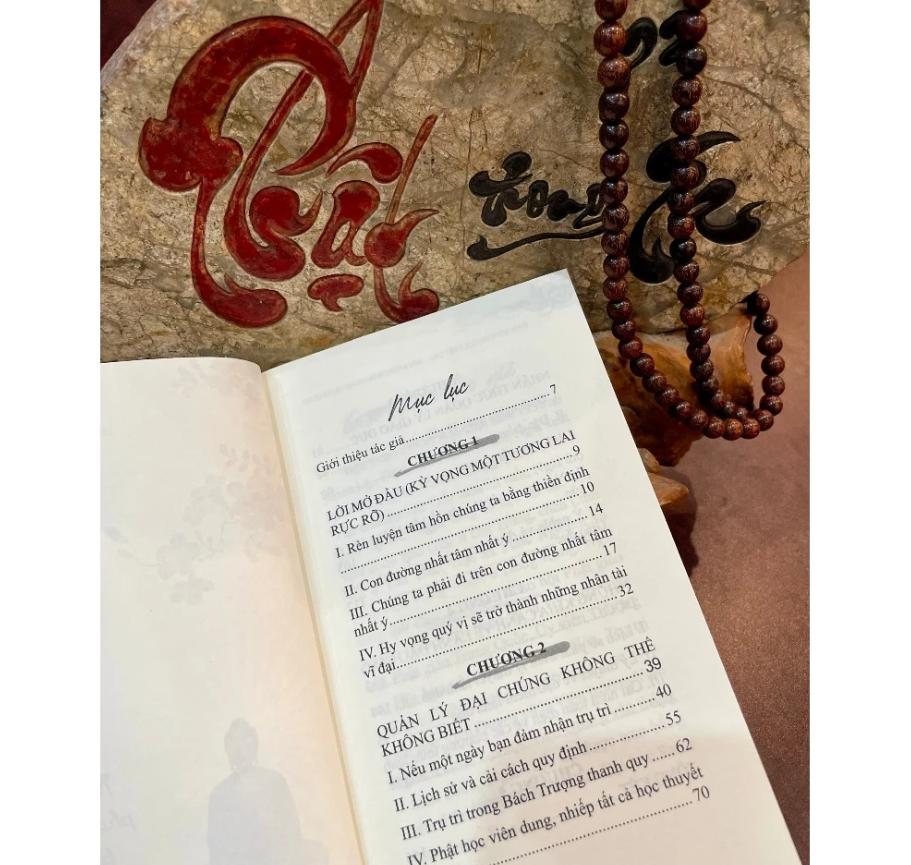 Phật
trong
Mục lục
Giới thiệu tác giả..........7
CHƯƠNG 1
LỜI MỞ ĐẦU (KỲ VỌNG MỘT TƯƠNG LAI
RỰC RỠ)..........9
I. Rèn luyện tâm hồn chúng ta bằng thiền định
..........10
II. Con đường nhất tâm nhất ý..........14
III. Chúng ta phải đi trên con đường nhất tâm
nhất ý..........17
IV. Hy vọng quý vị sẽ trở thành những nhân tài
vĩ đại..........32
CHƯƠNG 2
QUẢN LÝ ĐẠI CHÚNG KHÔNG THỂ
KHÔNG BIẾT..........39
I. Nếu một ngày bạn đảm nhận trụ trì..........40
II. Lịch sử và cải cách quy định..........55
III. Trụ trì trong Bách Trượng thanh quy......62
IV. Phật học viên dung, nhiếp tất cả học thuyết
..........70